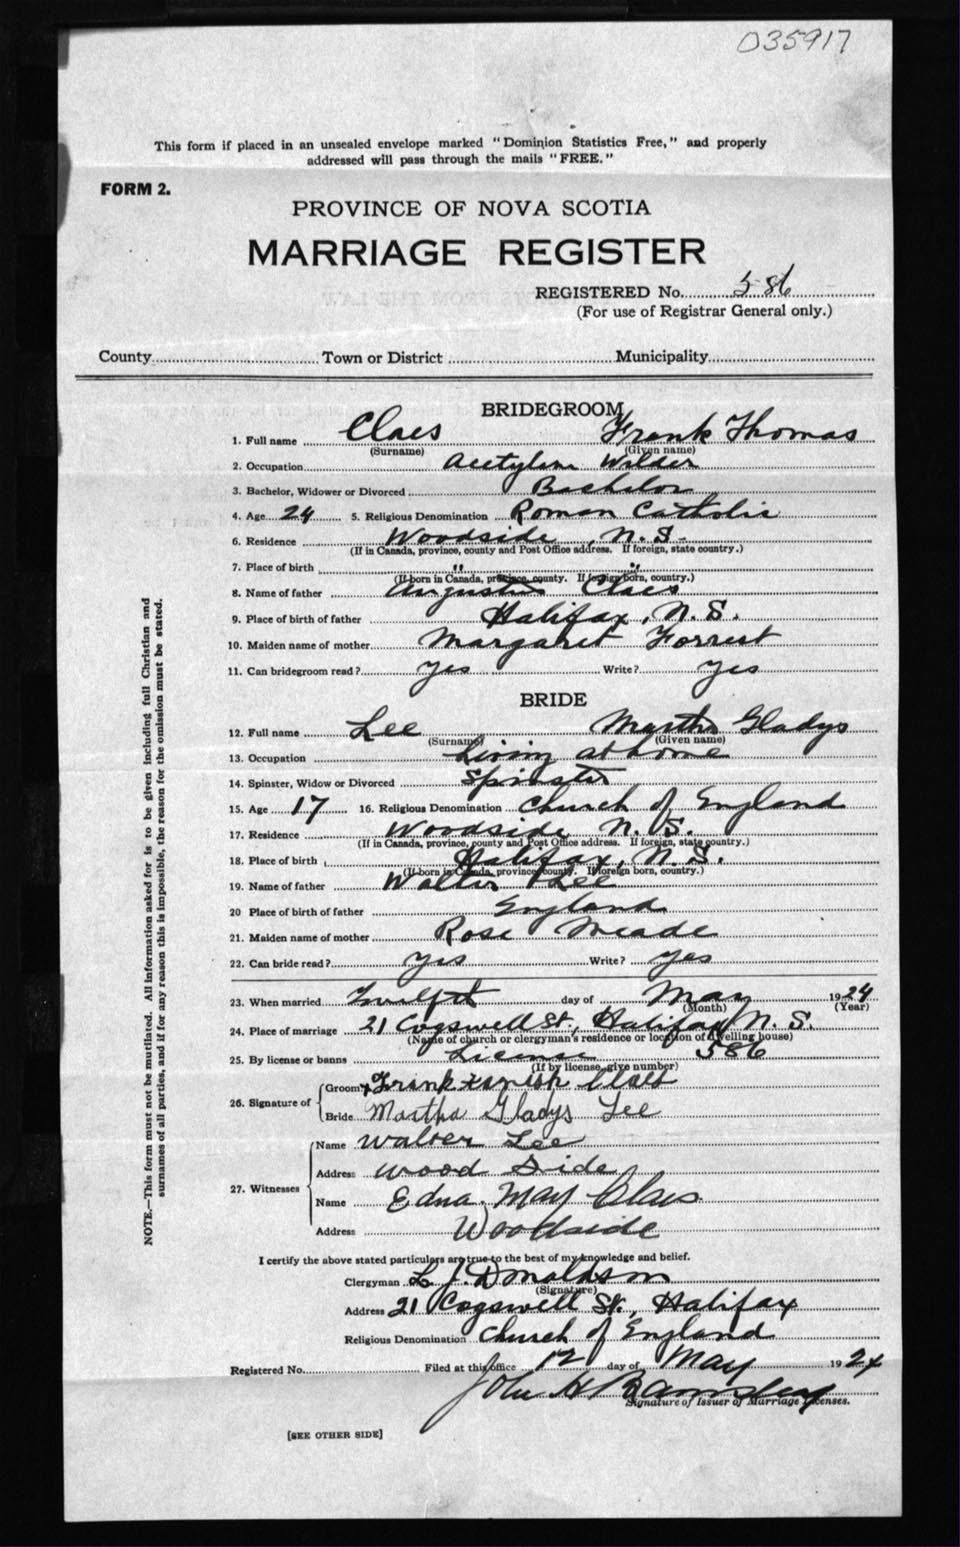 035917
This form if placed in an unsealed envelope marked "Dominion Statistics Free," and properly
addressed will pass through the mails "FREE."
FORM 2.
PROVINCE OF NOVA SCOTIA
MARRIAGE REGISTER
REGISTERED No. 586
(For use of Registrar General only.)
County Town or District Municipality
BRIDEGROOM
1. Full name Claes Frank Thomas
(Surname) (Given name)
2. Occupation Acetylene Welder
3. Bachelor, Widower or Divorced Bachelor
4. Age 24 5. Religious Denomination Roman Catholic
6. Residence Woodside, N.S.
(If in Canada, province, county and Post Office address. If foreign, state country.)
7. Place of birth " "
(If born in Canada, province, county. If foreign born, country.)
8. Name of father Augustus Claes
9. Place of birth of father Halifax, N.S.
10. Maiden name of mother Margaret Forrest
11. Can bridegroom read? Yes Write? Yes
BRIDE
12. Full name Lee Martha Gladys
(Surname) (Given name)
13. Occupation Living at home
14. Spinster, Widow or Divorced Spinster
15. Age 17 16. Religious Denomination Church of England
17. Residence Woodside N.S.
(If in Canada, province, county and Post Office address. If foreign, state country.)
18. Place of birth Halifax, N.S.
(If born in Canada, province, county. If foreign born, country.)
19. Name of father Walter Lee
20 Place of birth of father England
21. Maiden name of mother Rose Meade
22. Can bride read? Yes Write? Yes
23. When married Twelfth day of May 1924
(Month) (Year)
24. Place of marriage 21 Cogswell St., Halifax, N.S.
(Name of church or clergyman's residence or location of dwelling house)
25. By license or banns License 586
(If by license, give number)
26. Signature of Groom Frank Claes
Bride Martha Gladys Lee
27. Witnesses Name Walter Lee
Address Wood Side
Name Edna May Claes
Address Woodside
I certify the above stated particulars are true to the best of my knowledge and belief.
Clergyman L. J. Donaldson
(Signature)
Address 21 Cogswell St., Halifax
Religious Denomination Church of England
Registered No. Filed at this office 12 day of May 1924
John H Barnstead
Signature of Issuer of Marriage Licenses.
[SEE OTHER SIDE]
NOTE.—This form must not be mutilated. All information asked for is to be given including full Christian and
surnames of all parties, and if for any reason this is impossible, the reason for the omission must be stated.